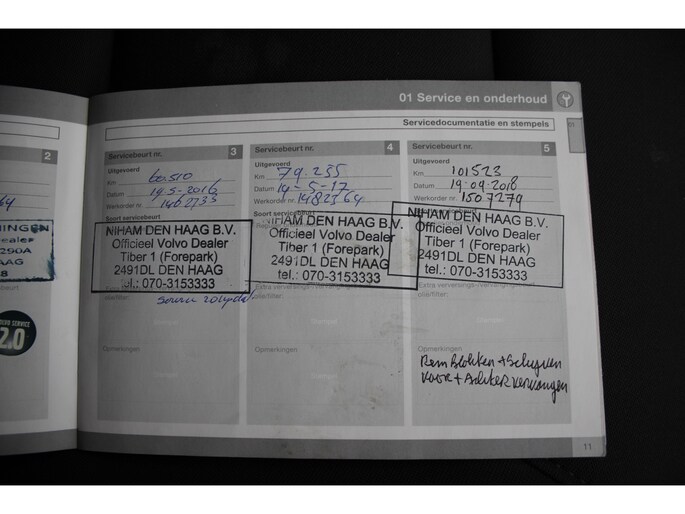 01 Service en onderhoud
Servicedocumentatie en stempels
2
NINGEN
ealer
290A
AAG
8
VOLVO SERVICE
2.0
Servicebeurt nr. 3
Uitgevoerd
Km 60.510
Datum 19-5-2016
Werkorder nr. 1402733
Soort servicebeurt
NIHAM DEN HAAG B.V.
Officieel Volvo Dealer
Tiber 1 (Forepark)
2491DL DEN HAAG
tel.: 070-3153333
olie/filter:
Opmerkingen
Servicebeurt nr. 4
Uitgevoerd
Km 79.235
Datum 14-5-17
Werkorder nr. 1482364
Soort servicebeurt
NIHAM DEN HAAG B.V.
Officieel Volvo Dealer
Tiber 1 (Forepark)
2491DL DEN HAAG
tel.: 070-3153333
olie/filter:
Opmerkingen
Servicebeurt nr. 5
Uitgevoerd
Km 101523
Datum 19-09-2018
Werkorder nr. 1507279
NIHAM DEN HAAG B.V.
Officieel Volvo Dealer
Tiber 1 (Forepark)
2491DL DEN HAAG
tel.: 070-3153333
olie/filter:
Opmerkingen
Rem Blokken + Schyven
Voor + Achter vervangen
11